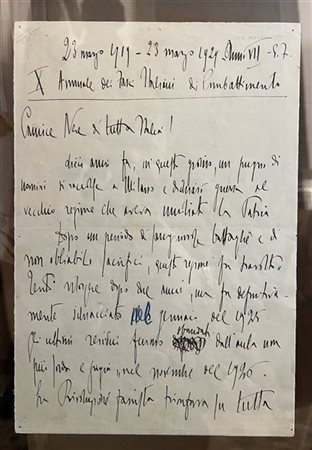 23 marzo 1919 - 23 marzo 1929 Anno VII - E.F.
X Annuale dei Fasci Italiani di Combattimento
Camicie Nere di tutta Italia!
dieci anni fa, in questo giorno, un pugno di
uomini si raccolse a Milano e dichiarò guerra al
vecchio regime che aveva umiliato la Patria
Dopo un periodo di sanguinose battaglie e di
non obliabili sacrifici, questo regime fu travolto.
Tentò risorgere dopo due anni, ma fu definitiva-
mente schiacciato nel gennaio del 1925
Gli ultimi residui furono sbandati dall'aula
più sorda e grigia, nel novembre del 1926.
La Rivoluzione fascista trionfava su tutta